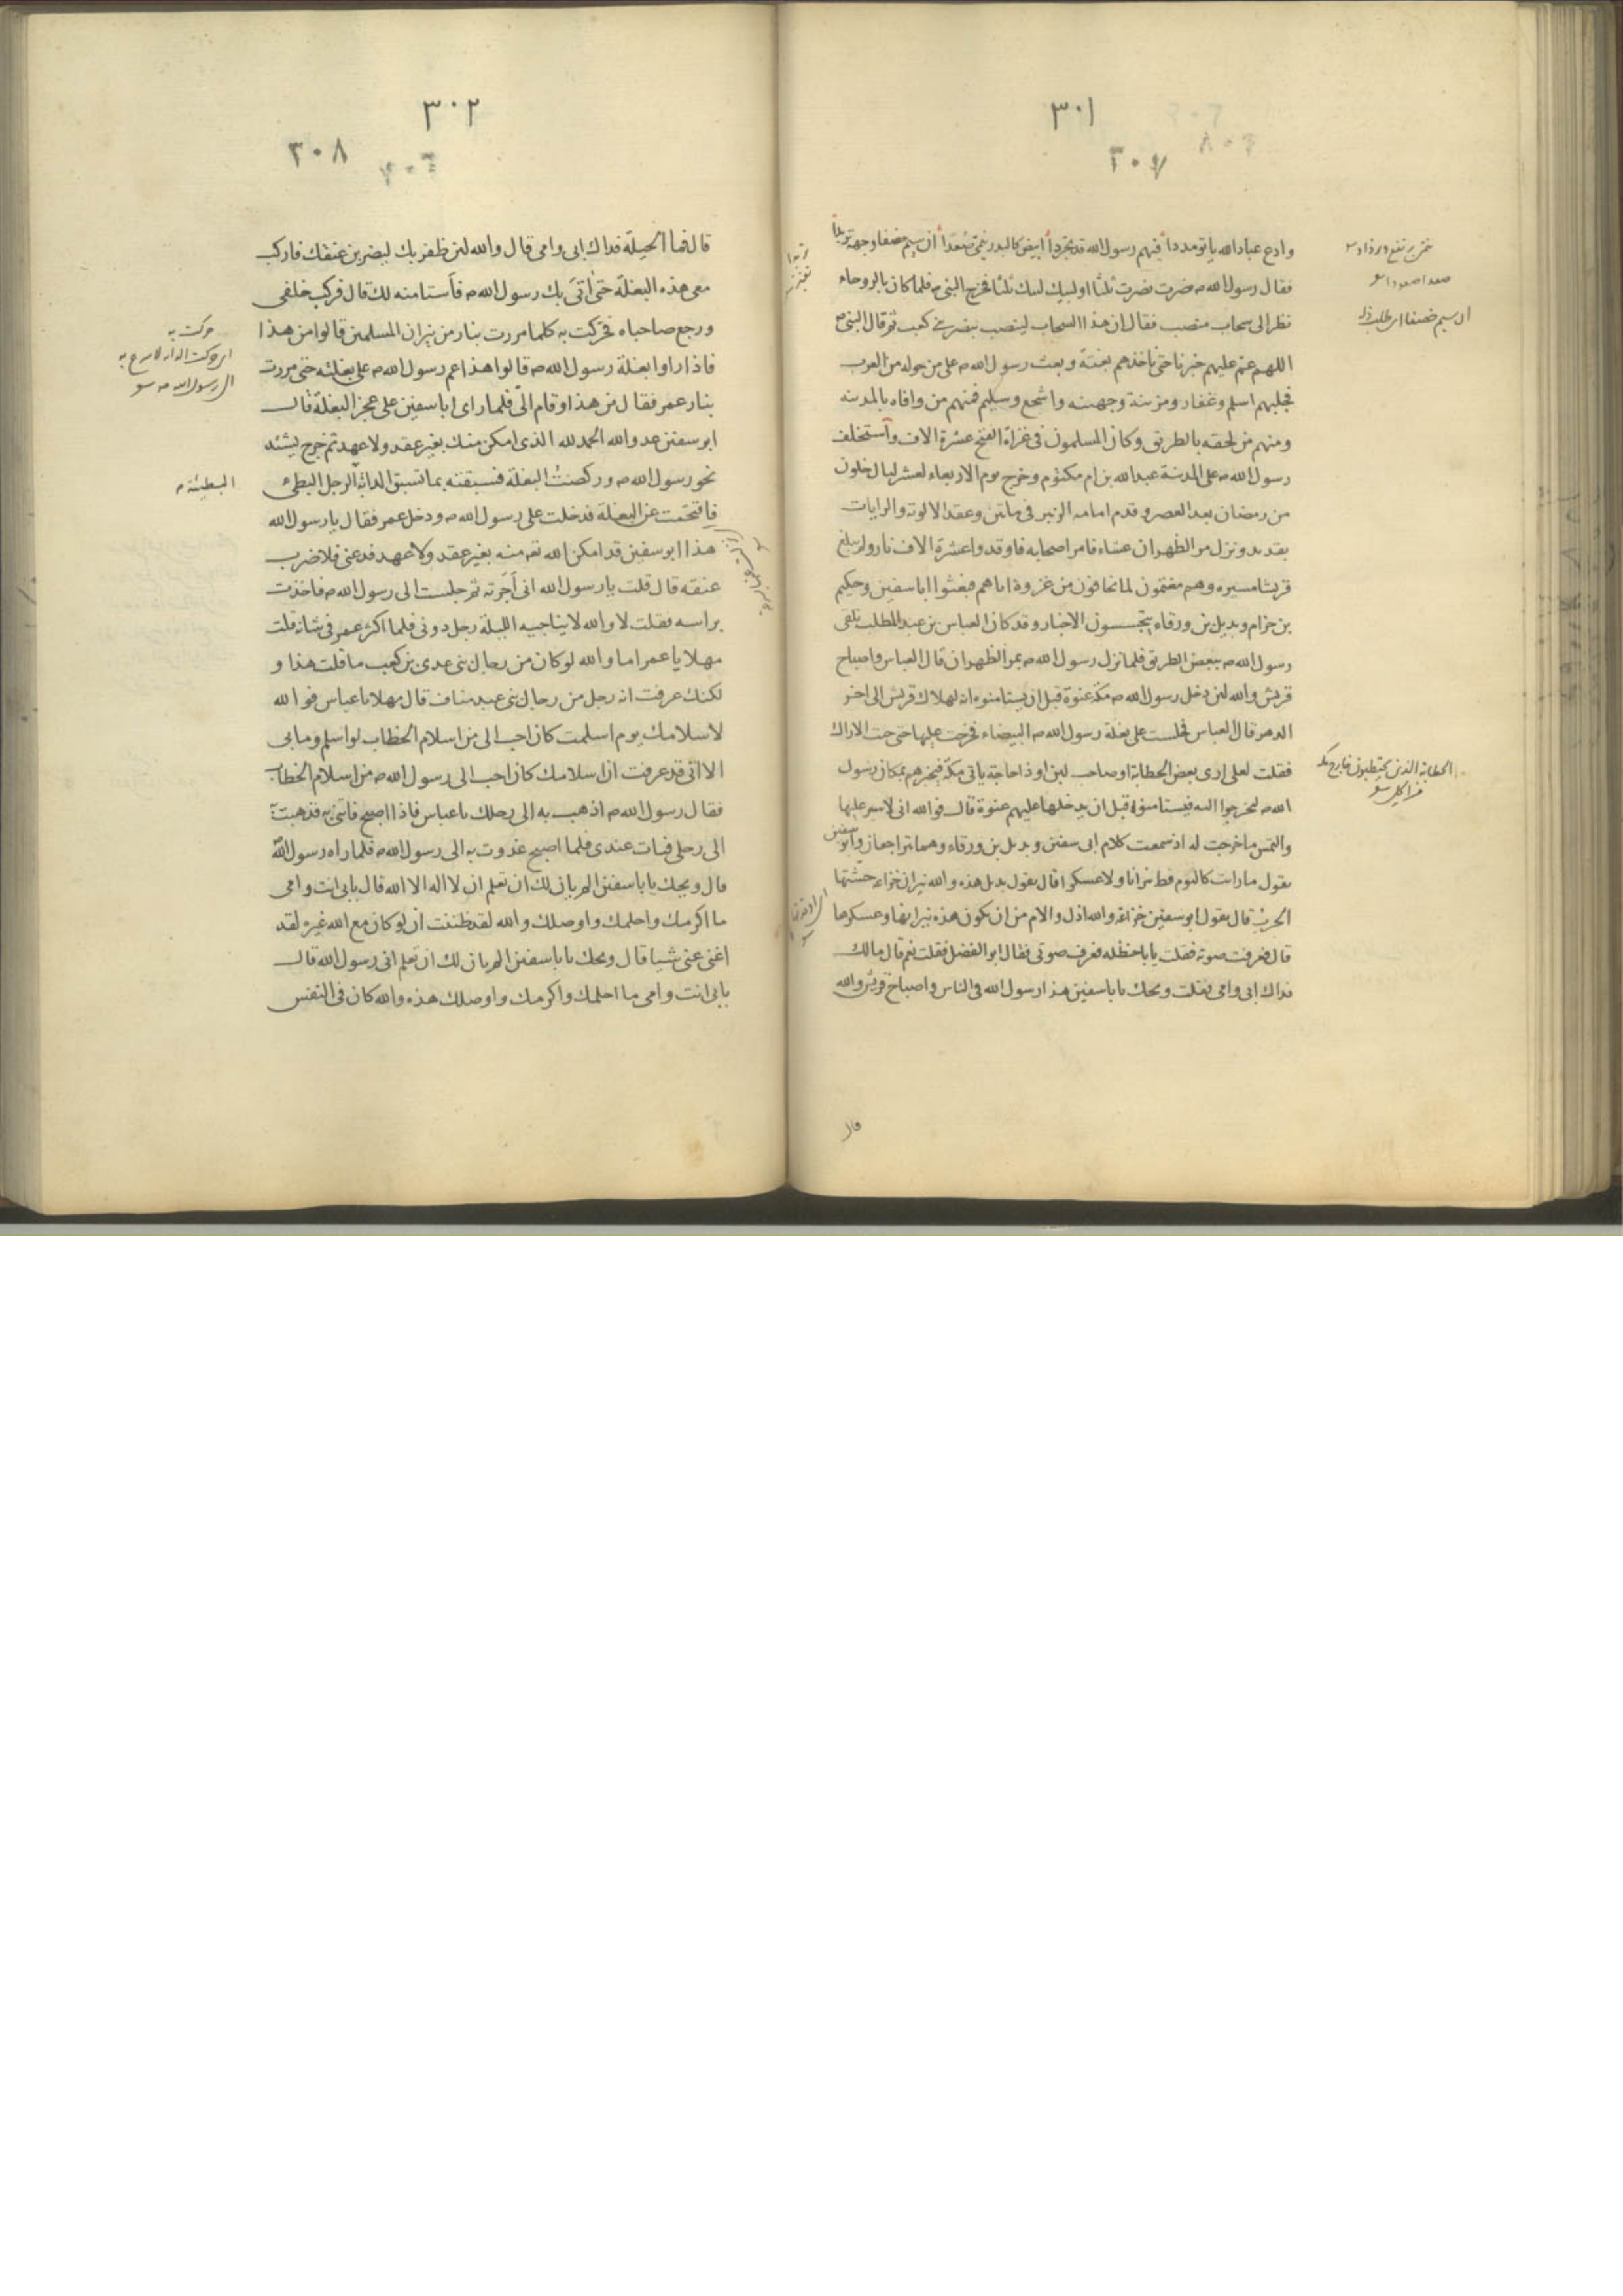 ٣٠١
٣٠٧
وادع عباد الله ياتو مددا فيهم رسول الله قد تجردا ابيض كالبدر ينمى صعدا ان سيم خسفا وجهه تربدا
فقال رسول الله م نصرت نصرت ثلثا او لبيك لبيك ثلثا فخرج النبى م فلما كان بالروحاء
نظر الى سحاب منصب فقال ان هذا السحاب لينصب بنصر بنى كعب ثم قال النبى م
اللهم عم عليهم خبرنا حتى ناخذهم بغتة وبعث رسول الله م على من حوله من العرب
فجلبهم اسلم وغفار ومزينة وجهينه واشجع وسليم فمنهم من وافاه بالمدينه
ومنهم من لحقه بالطريق وكان المسلمون فى غزاة الفتح عشرة الاف واستخلف
رسول الله م على المدينة عبد الله بن ام مكتوم وخرج يوم الاربعاء لعشر ليال خلون
من رمضان بعد العصر وقدم امامه الزبير فى ماتين وعقد الالوية والرايات
بقديد ونزل مر الظهران عشاء فامر اصحابه فاوقدوا عشرة الاف نار ولم يبلغ
قريشا مسيره وهم مغتمون لما يخافون من غزوة اياهم فبعثوا ابا سفين وحكيم
بن حزام وبديل بن ورقاء يتجسسون الاخبار وقد كان العباس بن عبد المطلب تلقى
رسول الله م ببعض الطريق فلما نزل رسول الله م بمر الظهران قال العباس واصباح
قريش والله لئن دخل رسول الله م مكة عنوة قبل ان يستامنوه انه لهلاك قريش الى اخر
الدهر قال العباس فجلست على بغلة رسول الله م البيضاء فخرجت عليها حتى جت الاراك
فقلت لعلى ارى بعض الحطابة او صاحب لبن او ذا حاجة ياتى مكة فيخبرهم بمكان رسول
الله م ليخرجوا اليه فيستامنوه قبل ان يدخلها عليهم عنوة قال فوالله انى لاسير عليها
والتمس ما خرجت له اذ سمعت كلام ابى سفين وبديل بن ورقاء وهما يتراجعان وابو سفين
يقول ما رايت كاليوم قط نيرانا ولا عسكرا قال يقول بديل هذه والله نيران خزاعه حمشتها
الحرب قال يقول ابو سفين خزاعة والله اذل والام من ان تكون هذه نيرانها وعسكرها
قال فعرفت صوته فقلت يابا حنظله فعرف صوتى فقال ابو الفضل فقلت نعم قال مالك
فداك ابى وامى فقلت ويحك يابا سفين هذا رسول الله فى الناس واصباح قريش والله
قال
صعدا صعودا
الحطابة الذين يحتطبون خارج مكة
٣٠٢
٣٠٨
قال فما الحيلة فداك ابى وامى قال والله لئن ظفر بك ليضربن عنقك فاركب
معى هذه البغلة حتى اتى بك رسول الله م فاستامنه لك قال فركب خلفى
ورجع صاحباه فحركت به كلما مررت بنار من نيران المسلمين قالوا من هذا
فاذا راوا بغلة رسول الله م قالوا هذا عم رسول الله م على بغلته حتى مررت
بنار عمر فقال من هذا وقام الى فلما راى ابا سفين على عجز البغلة قال
ابو سفين عدو الله الحمد لله الذى امكن منك بغير عقد ولا عهد ثم خرج يشتد
نحو رسول الله م وركضت البغلة فسبقته بما تسبق الدابة الرجل البطئ
فاقتحمت عن البغلة فدخلت على رسول الله م ودخل عمر فقال يا رسول الله
هذا ابو سفين قد امكن الله تعه منه بغير عقد ولا عهد فدعنى فلاضرب
عنقه قال قلت يا رسول الله انى اجرته ثم جلست الى رسول الله م فاخذت
براسه فقلت لا والله لا يناجيه الليلة رجل دونى فلما اكثر عمر فى شانه قلت
مهلا يا عمر اما والله لو كان من رجال بنى عدى بن كعب ما قلت هذا و
لكنك عرفت انه رجل من رجال بنى عبد مناف قال مهلا يا عباس فوالله
لاسلامك يوم اسلمت كان احب الى من اسلام الخطاب لو اسلم وما بى
الا انى قد عرفت ان اسلامك كان احب الى رسول الله م من اسلام الخطاب
فقال رسول الله م اذهب به الى رحلك يا عباس فاذا اصبح فاتنى به فذهبت به
الى رحلى فبات عندى فلما اصبح غدوت به الى رسول الله م فلما راه رسول الله
قال ويحك يابا سفين الم يان لك ان تعلم ان لا اله الا الله قال بابى انت وامى
ما اكرمك واحلمك واوصلك والله لقد ظننت ان لو كان مع الله غيره لقد
اغنى عنى شيا قال ويحك يابا سفين الم يان لك ان تعلم انى رسول الله قال
بابى انت وامى ما احلمك واكرمك واوصلك هذه والله كان فى النفس
حركت به
الى رسول الله م
البطيئة م